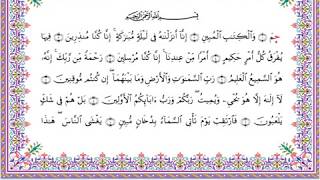 بِسْمِ اللَّهِ الرَّحْمَٰنِ الرَّحِيمِ
حمٓ ۝ وَالْكِتَابِ الْمُبِينِ ۝ إِنَّا أَنزَلْنَاهُ فِي لَيْلَةٍ مُّبَارَكَةٍ ۚ إِنَّا كُنَّا مُنذِرِينَ ۝ فِيهَا
يُفْرَقُ كُلُّ أَمْرٍ حَكِيمٍ ۝ أَمْرًا مِّنْ عِندِنَا ۚ إِنَّا كُنَّا مُرْسِلِينَ ۝ رَحْمَةً مِّن رَّبِّكَ ۚ إِنَّهُ
هُوَ السَّمِيعُ الْعَلِيمُ ۝ رَبِّ السَّمَاوَاتِ وَالْأَرْضِ وَمَا بَيْنَهُمَا ۖ إِن كُنتُم مُّوقِنِينَ ۝
لَا إِلَٰهَ إِلَّا هُوَ يُحْيِي وَيُمِيتُ ۖ رَبُّكُمْ وَرَبُّ آبَائِكُمُ الْأَوَّلِينَ ۝ بَلْ هُمْ فِي شَكٍّ
يَلْعَبُونَ ۝ فَارْتَقِبْ يَوْمَ تَأْتِي السَّمَاءُ بِدُخَانٍ مُّبِينٍ ۝ يَغْشَى النَّاسَ ۖ هَٰذَا